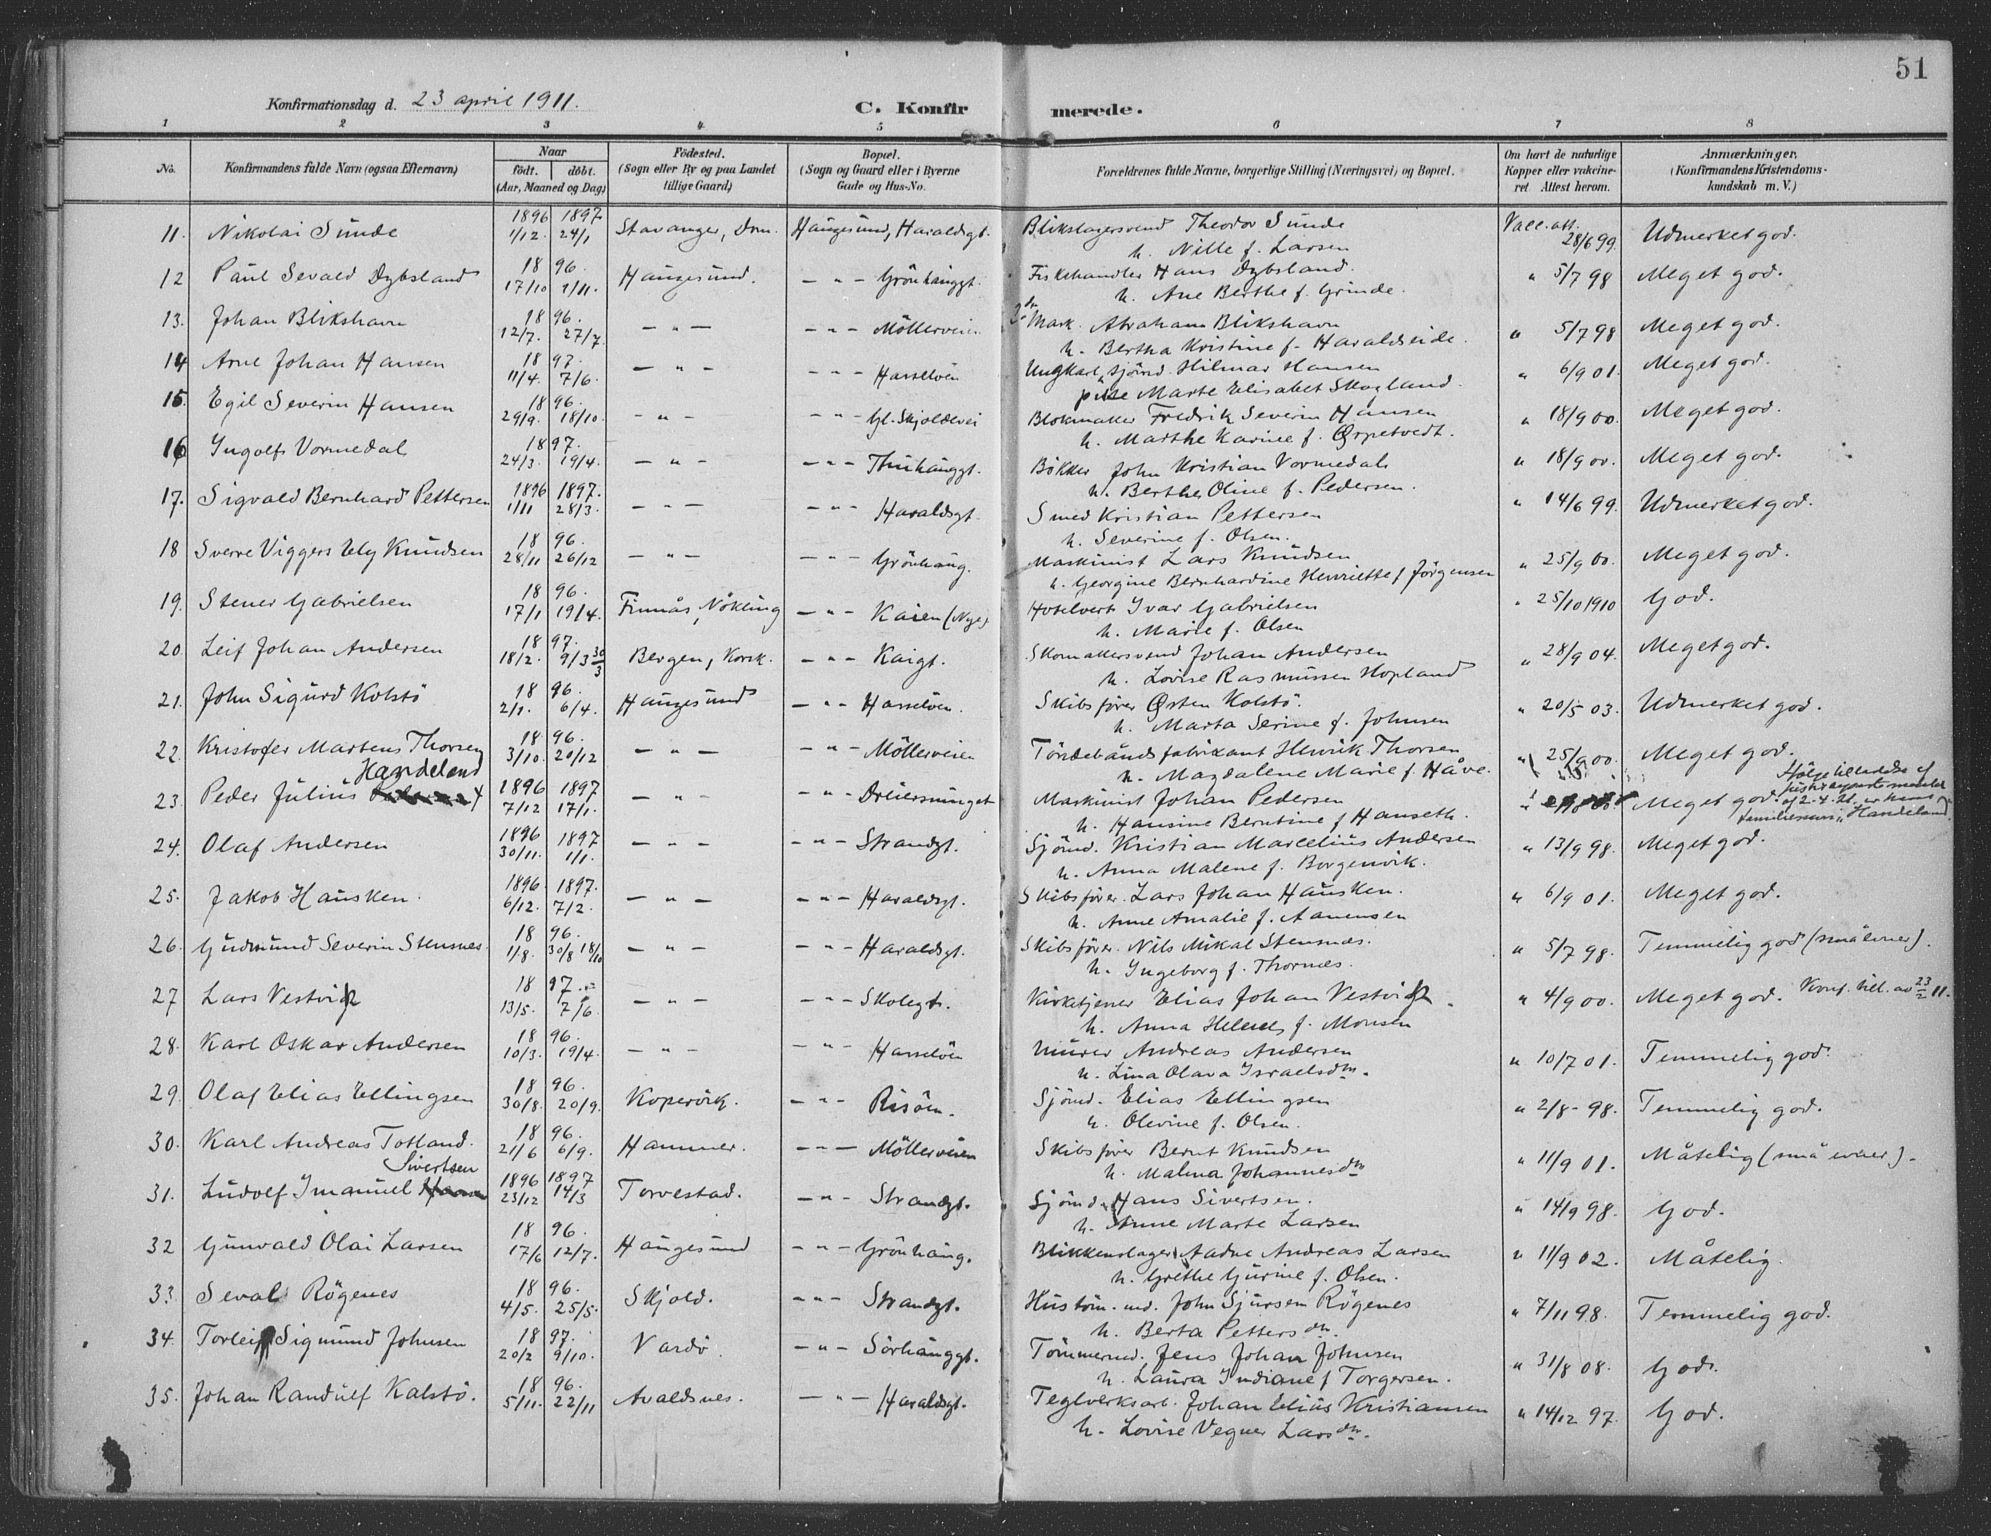 51
Konfirmationsdag d. 23 april 1911.
C. Konfirmerede.
1 2 3 4 5 6 7 8
No. Konfirmandens fulde Navn (ogsaa Efternavn) Naar født. døbt. (Aar, Maaned og Dag) Fødested. (Sogn eller By og paa Landet tillige Gaard) Bopæl. (Sogn og Gaard eller i Byerne Gade og Hus-No. Forældrenes fulde Navne, borgerlige Stilling (Næringsvei) og Bopæl. Om havt de naturlige Kopper eller vakcineret Attest herom. Anmærkninger. (Konfirmandens Kristendomskundskab m. V.)
11. Nikolai Sunde 1896 1/12. 1897 24/1 Stavanger, Dom. Haugesund, Haraldsgt. Blikslagersvend Theodor Sunde Vacc. att. 28/6 99. Udmerket god.
h. Nille f. Larsen
12 Paul Sevald Dybsland 18 96. 17/10 1/11. Haugesund. — " — Grönhauggt. Fiskehandler Hans Dybsland. " 5/7 98 Meget god.
h. Ane Berthe f. Grinde.
13. Johan Blikshavn 18 96. 12/7. 27/7 — " — — " — Möllerveien Mark. Abraham Blikshavn " 5/7 98 Meget god.
h. Bertha Kristine f. Haraldseide.
14 Arne Johan Hansen 18 97. 11/4. 7/6. — " — — " — Hasselöen Ungkarl, sjömd. Hilmar Hansen " 6/9 01. Meget god.
pike Marte Elisabet Skogland.
15. Egil Severin Hansen 18 96. 29/9. 18/10. — " — — " — Gl. Skjoldevei Blokmaker Fredrik Severin Hansen " 18/9 00. Meget god.
h. Marthe Karine f. Ørpetvedt.
16 Ingolf Vormedal 18 97. 24/3. 19/4. — " — — " — Thuhauggt. Bökker John Kristian Vormedal " 18/9 00. Meget god.
h. Berthe Oline f. Pedersen.
17. Sigvald Bernhard Pettersen 1896 1/11 1897. 28/3. — " — — " — Haraldsgt. Smed Kristian Pettersen " 14/6 99. Udmerket god.
h. Severine f. Olsen.
18 Sverre Viggers Ely Knudsen 18 96. 28/11 26/12 — " — — " — Grönhaug. Maskinist Lars Knudsen " 25/9 00. Meget god.
h. Georgine Bernhardine Henriette f Jörgensen
19. Stener Gabrielsen 18 96. 17/1 19/4. Finnås, Nökling — " — Kaien (Nye) Hotelvert Ivar Gabrielsen " 25/10 1910 God.
h. Marie f. Olsen
20. Leif Johan Andersen 18 97. 18/2. 9/3 30/3 Bergen, Korsk. — " — Kaigt. Skomakersvend Johan Andersen " 28/9 04. Meget god.
h. Lovise Rasmussen Hopland
21. John Sigurd Kolstö 18 96. 2/1. 6/4. Haugesund — " — Hasselöen. Skibsförer Østen Kolstö. " 20/5 03. Udmerket god.
h. Marta Serine f. Johnsen
22. Kristofer Martens Thorsen 18 96. 3/10. 20/12 — " — — " — Möllerveien Töndebåndsfabrikant Henrik Thorsen " 25/9 00. Meget god.
h. Magdalene Marie f. Håve.
Handeland
23. Peder Julius 1896 7/12 1897 17/1. — " — — " — Dreiersmuget Maskinist Johan Pedersen Meget god. Ifölge tilladelse af justisdepartementet af 2-4-21. er hans familienavn "Handeland"
h. Hansine Berntine f Hanseth.
24. Olaf Andersen 1896 30/11. 1897 1/1. — " — — " — Strandgt. Sjömd. Kristian Marcelius Andersen " 13/9 98. Meget god.
h. Anna Malene f. Borgenvik.
25. Jakob Hausken. 1896 6/12. 1897. 7/2. — " — — " — Haraldsgt. Skibsförer. Lars Johan Hausken. " 6/9 01. Meget god.
h. Anne Amalie f. Aanensen
26. Gudmund Severin Stensnes. 18 96. 1/8. 30/8 18/10 — " — — " — Haraldsgt. Skibsförer. Nils Mikal Stensnæs. " 5/7 98. Temmelig god (små evner).
h. Ingeborg f. Thornes.
27 Lars Vestvik 18 97. 13/5. 7/6. — " — — " — Skolegt. Kirketjener Elias Johan Vestvik. " 4/9 00. Meget god. Konf. till. av 23/2 11.
h. Anna Helene f. Monsen
28. Karl Oskar Andersen 18 96. 10/3. 19/4. — " — — " — Hasselöen Murer Andreas Andersen " 10/7 01. Temmelig god.
h. Lina Olava Israelsdtr.
29. Olaf Elias Ellingsen 18 96. 30/8. 20/9. Kopervik. — " — Risöen. Sjömd. Elias Ellingsen " 2/8 - 98. Temmelig god.
h. Olevine f. Olsen.
30. Karl Andreas Totland. 18 96. 21/6 6/9. Hammer. — " — Möllerveien Skibsförer Bernt Knudsen " 11/9 01. Måtelig (små evner).
h. Malena Johannesdtr
Sivertsen
31. Ludolf Imanuel 1896 23/12 1897 14/3 Torvestad. — " — Strandgt. Sjömd. Hans Sivertsen. " 14/9 98. God.
h. Anne Marte Larsen
32 Gunvald Olai Larsen 18 96. 17/6 12/7. Haugesund — " — Grönhaug. Blikkenslager Aadne Andreas Larsen " 11/9 02. Måtelig.
h. Grethe Gurine f. Olsen.
33. Sevald Rögenes 18 96. 4/5. 25/5. Skjold. — " — Strandgt. Hustöm. md. John Sjursen Rögenes " 7/11 98. Temmelig god.
h. Berta Pettersdtr.
34. Torleif Sigmund Johnsen 18 97. 20/2 9/10. Vardö — " — Sörhauggt. Tömmermd. Jens Johan Johnsen " 31/8 08. God.
h. Laura Indiane f Torgersen.
35. Johan Randulf Kalstö. 18 96. 5/11. 22/11 Avaldsnes. — " — Haraldsgt. Teglverksarb. Johan Elius Kristiansen " 14/12 97. God.
h. Lovise Vegner Larsdtr.